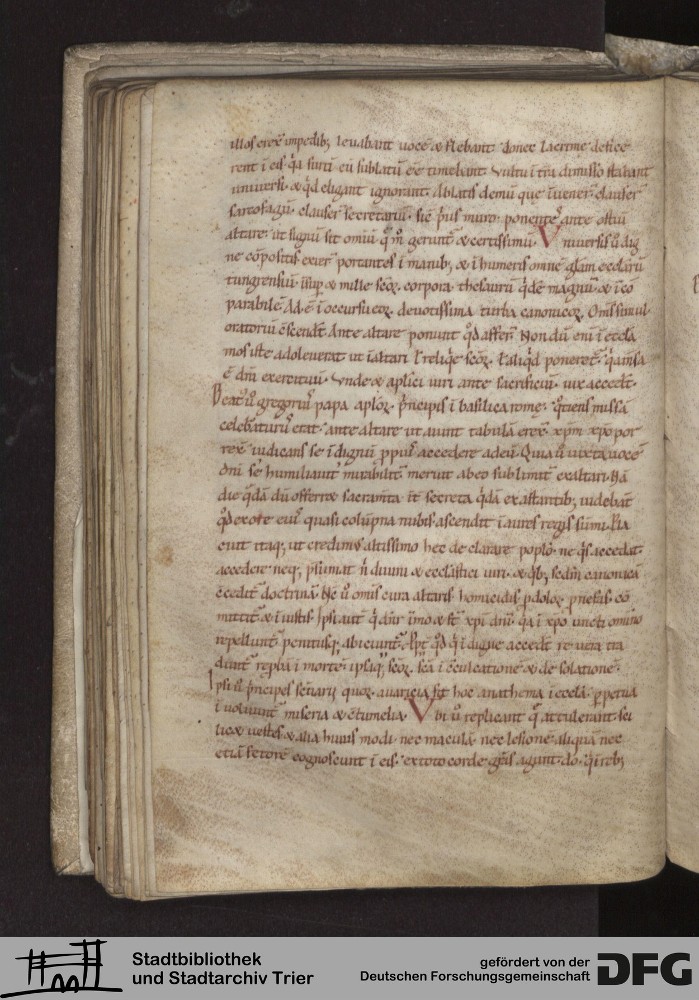 illos erexit impedib; levabant voce & flebant donec lacrime defice
rent i eis qa furtū eū sublatū eē timebant. Vultu i tra dimisso stabant
universi. & qd eligant ignorant. Ablatis demū que ivener clauser
sartofagū. clauser secretariū. sic p'us muro ponente ante ostiū
altare. ut signū sit omiū q m gerunt & certissimū. Universis u dig
ne cōpositis exier portantes i manib; & i humeris omnē gl'am eccl'arū
tungrensiū. iiiq & mille scōr. corpora. thesaurū qdē magnū. & īcō
parabile. Ad. ē i occursu eor. devotissima turba canonicor. Om's simul
oratoriū cscendt. Ante altare ponunt qd affer. Non dū eni i eccl'a
mos iste adoleverat ut i altari l' reliqe scōr. l' aliqd poneret.
ē dm̄ exercitiū. Unde & apl'ici viri ante sacrificiū. vix accedt.
Beat' u gregoriu' papa apl'or. p'ncipis i basilica rome. qtiens missā
celebaturu' erat. ante altare ut aiunt tabulā erex. xpm xpo por
rex. iudicans se i dignū accedere ad eū. Quia u iuxta voce
dni se humiliavit mirabilit meruit ab eo sublimit exaltari. Nā
die qdā dū offerre sacram'ta it secreta qdā ex astantib; videbat
qd ex ore eiu' quasi colūpna nubis ascendit i aures regis sūmi.
ciut itaq; ut credim' altissimo hec declarare popl'o. ne qs accedat.
accedere neq; p'sumat n divini & eccl'astici viri. & qb; scdm canonicā
ccedit doctrinā. Nc u omis cura altaris homicidis p'dolor. p'nefas. cō
mittit & i iustis. Ipsi aut qd'dnr imo & st xpi dnī. qa i xpo uncti omino
repellunt penitusq; abiciunt. Apt qd q i digne accedt re vera tra
dunt repbā i morte. ipsiq; scōr. scā i cculcatione & de solatione.
Ipsi u p'ncipes scriariū quor. avaricia fit hoc anathema i eccl'a p'petua
i volvunt miseria & ctumelia. Ubi u replicant q attulerant. sci
licæ vestes & alia huius modi nec maculā nec lesione aliquā nec
etiā fetorē cognoscunt i eis. ex toto corde gr'as agunt. dō. qi reb;
Stadtbibliothek
und Stadtarchiv Trier
gefördert von der
Deutschen Forschungsgemeinschaft
DFG